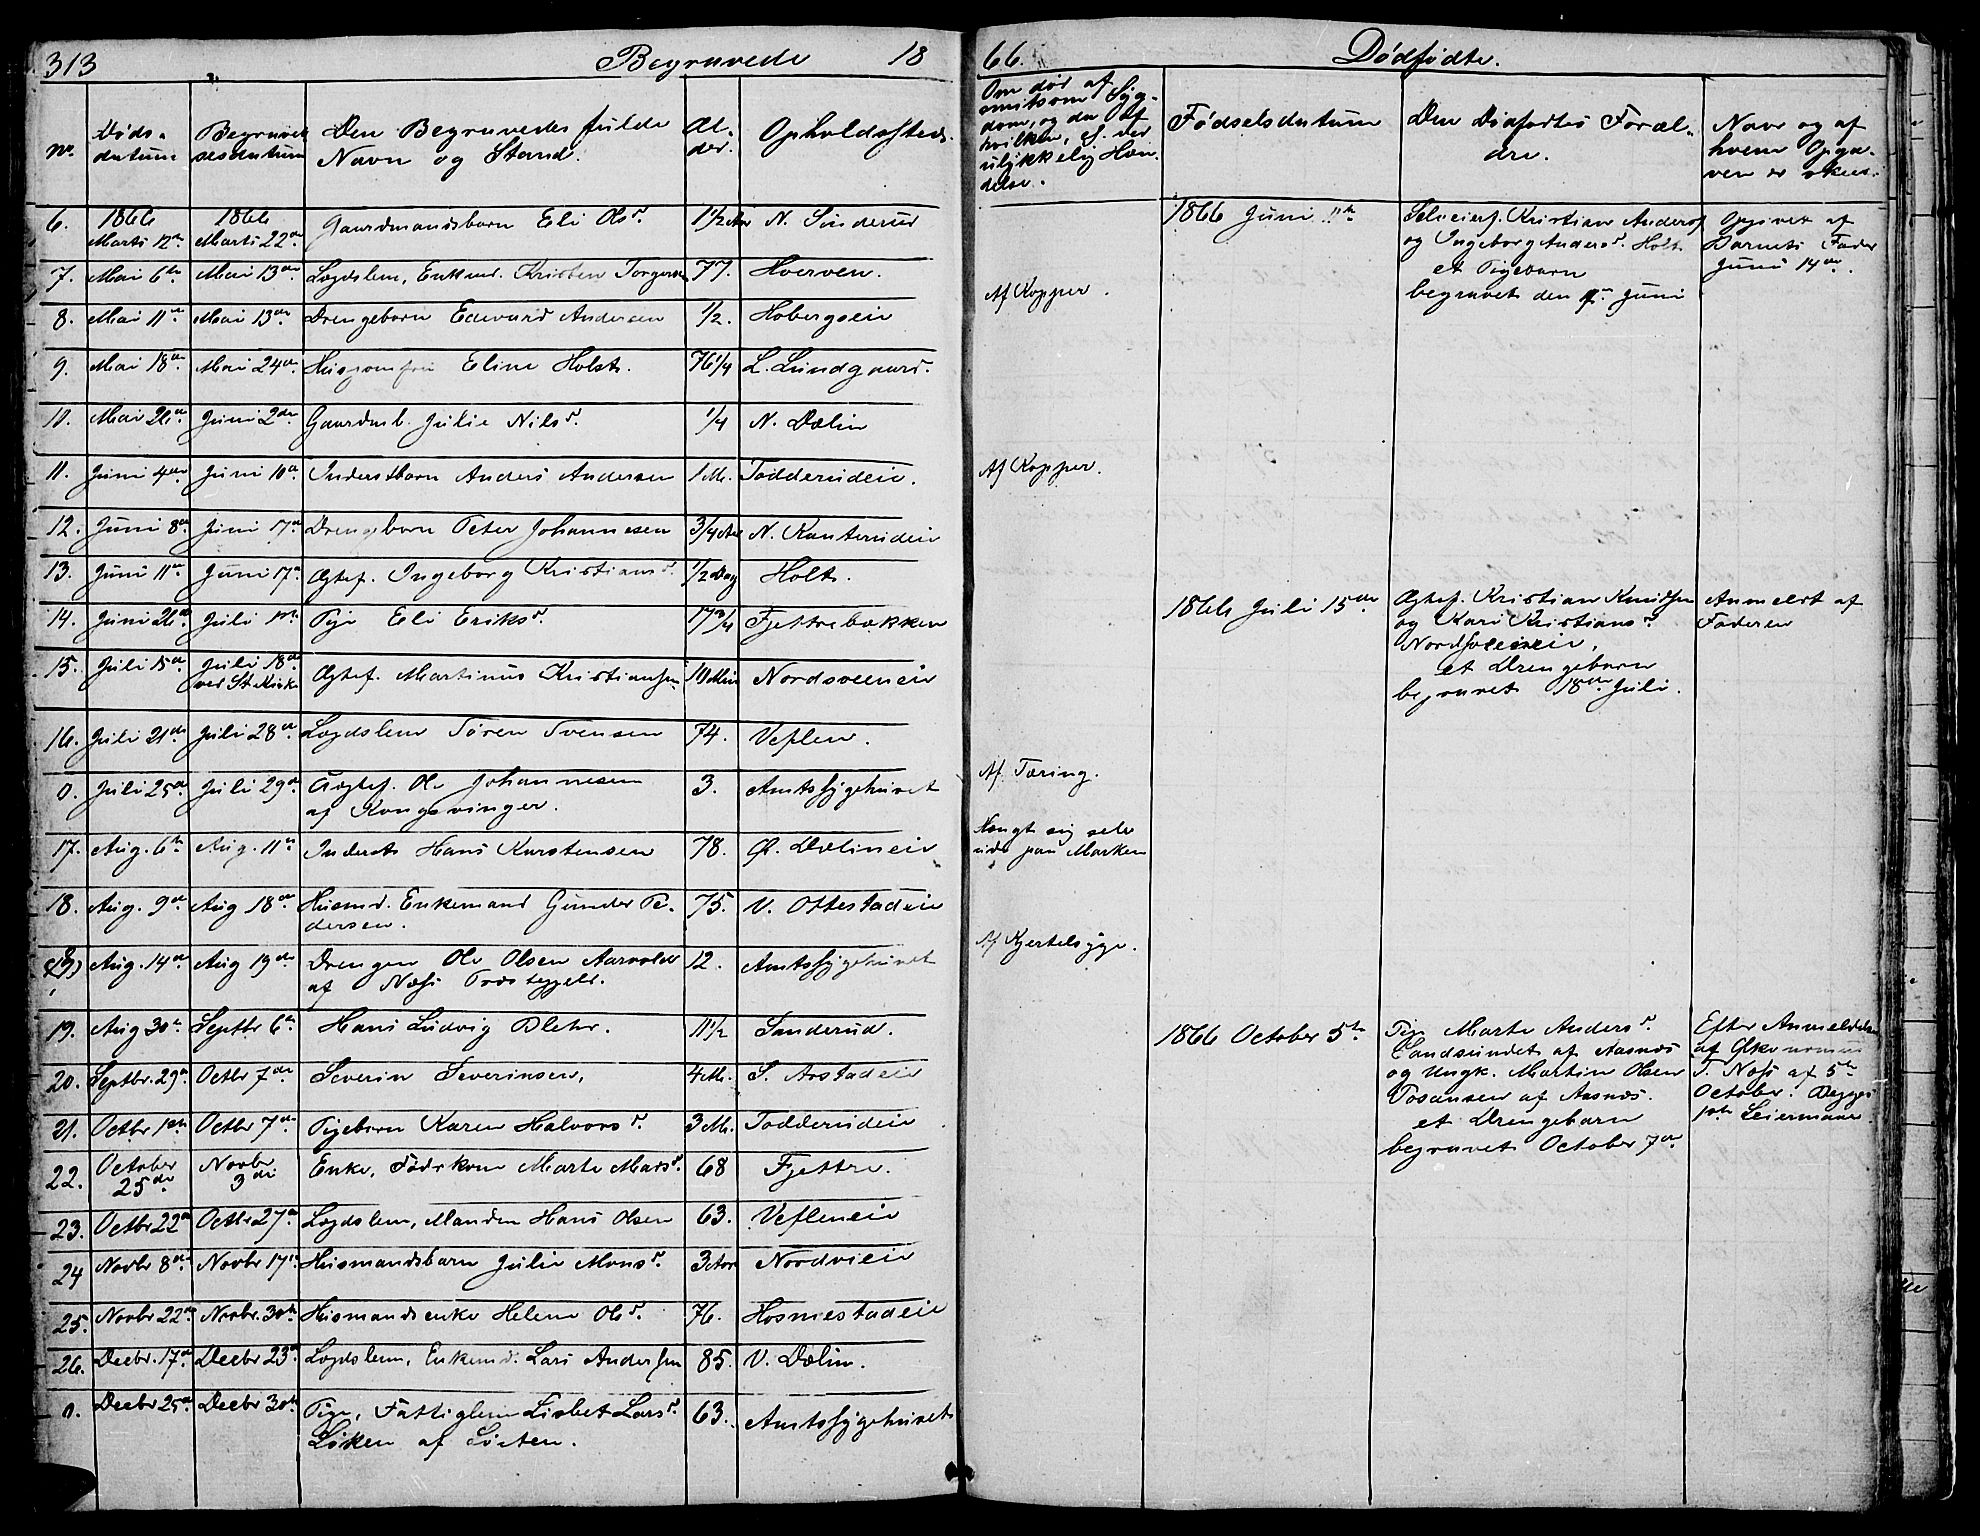 313 Begravede 18
No. Døds- datum Begravel- sesdatum Den Begravedes fulde Navn og Stand. Al- der. Opholdssted.
6. 1866 Marts 12te 1866 Marts 22de Gaardmandsbarn Eli Olsd. 1 1/2 Aar N. Sinderud
7. Mai 6te Mai 13de Lægdslem, Enkemd. Kristen Torgersen 77. Hverven.
8. Mai 11te Mai 13de Drengebarn Edevard Andersen 1/2. Hobergseie
9. Mai 18de Mai 24de Husjomfru Eline Holst. 76 1/4 L. Lundgaard.
10. Mai 26de Juni 2den Gaardmb. Julie Nilsd. 1/4 N. Dælin
11. Juni 4de Juni 10de Inderstbarn Anders Andersen 1 M. Todderudeie.
12. Juni 8de Juni 17de Drengebarn Peter Johannesen 3/4 Aar N. Kanterudeie
13. Juni 11te Juni 17de Ægtef. Ingeborg Kristiansd. 1/2 Dag Holt.
14. Juni 26de Juli 1ste Pige Eli Eriksd. 17 3/4 Fjettrebakken
15. Juli 15de Juli 18de ved St. Kirke Ægtef. Martinus Kristiansen 10 Min Nordsveeneie
16. Juli 21de Juli 28de Lægdslem Søren Svensen 74. Veflen.
0. Juli 25de Juli 29de Uægtef. Ole Johannesen af Kongsvinger. 3. Amtssygehuset
17. Aug. 6te Aug. 11te Inderst Hans Karstensen 78. Ø. Dælineie
18. Aug. 9de Aug 18de Husmd. Enkemand Gunder Pe- dersen. 75. V. Ottestadeie
Aug. 14de Aug 19de Drengen Ole Olsen Aarvolden af Næss Præstegjeld. 12. Amtssygehuset
19. Aug 30te Septbr 6te Hans Ludvig Blehr. 11 1/2 Sinderud.
20. Septbr. 29de Octbr 7de Severin Severinsen, 4 M. S. Arstadeie
21. Octbr 1ste Octbr 7de Pigebarn Karen Halvorsd. 3 M. Todderudeie
22. October 25de Novbr 3de Enke, Føderkone Marte Madsd. 68 Fjettre.
23. Octbr 22de Octbr 27de Lægdslem, Manden Hans Olsen 63. Vefleneie
24 Novbr 8de Novbr 17de Husmandsbarn Julie Monsd. 3 Aar Nordvieie
25. Novbr 22de Novbr. 30te Husmandsenke Helene Olsd. 76. Hosmestadeie
26. Decbr. 17de Decbr 23de Lægdslem, Enkemd. Lars Andersen 85. V. Dælin.
0. Decbr 25de Decbr 30te Pige, Fattiglem Lisbet Larsd. Løken af Løiten. 63. Amtssygehuset
66. Dødfødte.
Om død af smitsom Syg- dom, og da af hvilken, el. ved ulykkelig Hæn- delse.
Fødselsdatum
Den Dødfødtes Foræl- dre.
Naar og af hvem Opga- ven er skeet.
Af Kopper.
1866 Juni 11te
Selveierf. Kristian Anders.
og Ingeborg Andersd. Holt
et Pigebarn
begravet den Juni
Opgivet af
Barnets Fader
Juni 14de.
Af Kopper.
1866 Juli 15de
Ægtef. Kristian Knudsen
og Kari Kristiansd.
Nordsveeneie,
et Drengebarn
begravet 18de Juli.
Anmeldt af
Faderen
Af Tæring.
Hængt sig selv
ude paa Marken
Af Kjertelsyge.
1866 October 5te
Pige Marte Andersd.
Sandsundet af Aasnæs
og Ungk. Martin Olsen
af Aasnæs.
et Drengebarn
begravet October 7de
Efter Anmeldelse
af Økonomus
T. Næss af 5te
October. Begges
1ste Leiermaal